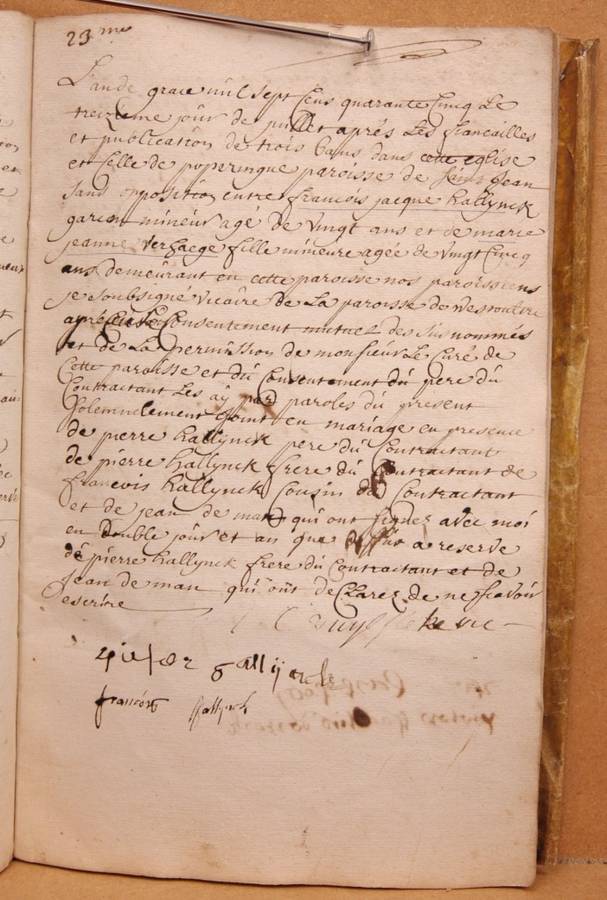 23.me
L'an de grace mil sept cens quarante cinq le
treizieme jour de juillet aprés les fiancailles
et publication de trois bans dans cette eglise
et celle de poperingue paroisse de saint Jean
sans opposition entre francois jacque hallynck
garcon mineur age de vingt ans et de marie
jeanne verhaege fille mineure agée de vingt cinq
ans demeurant en cette paroisse nos paroissiens
je soubsigné vicaire de la paroisse de westoutre
aprés le consentement mutuel des susnommés
et de la permission de monsieur le curé de
cette paroisse et du consentement du pere du
contractant les aÿ par paroles du present
solemnelement joint en mariage en presence
de pierre hallynck pere du contractant
de pierre hallynck frere du contractant de
francois hallynck cousin du contractant
et de jean de man qui ont signez avec moi
en double jour et an que dessus a reserve
de pierre hallynck frere du contractant et de
Jean de man qui ont declarez de ne scavoir
escrire
pieter hallijnck
francois hallynck